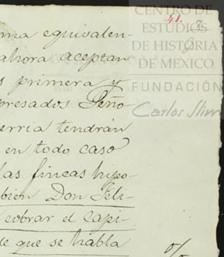 CENTRO DE
ESTUDIOS
DE HISTORIA
DE MEXICO
FUNDACIÓN
Carlos Slim
41.
ma equivalen-
ahora aceptan
s primera y
presados Seño-
erria tendrán
en todo caso
las fincas hipo-
bien Don Feli-
cobrar el capi-
de que se habla